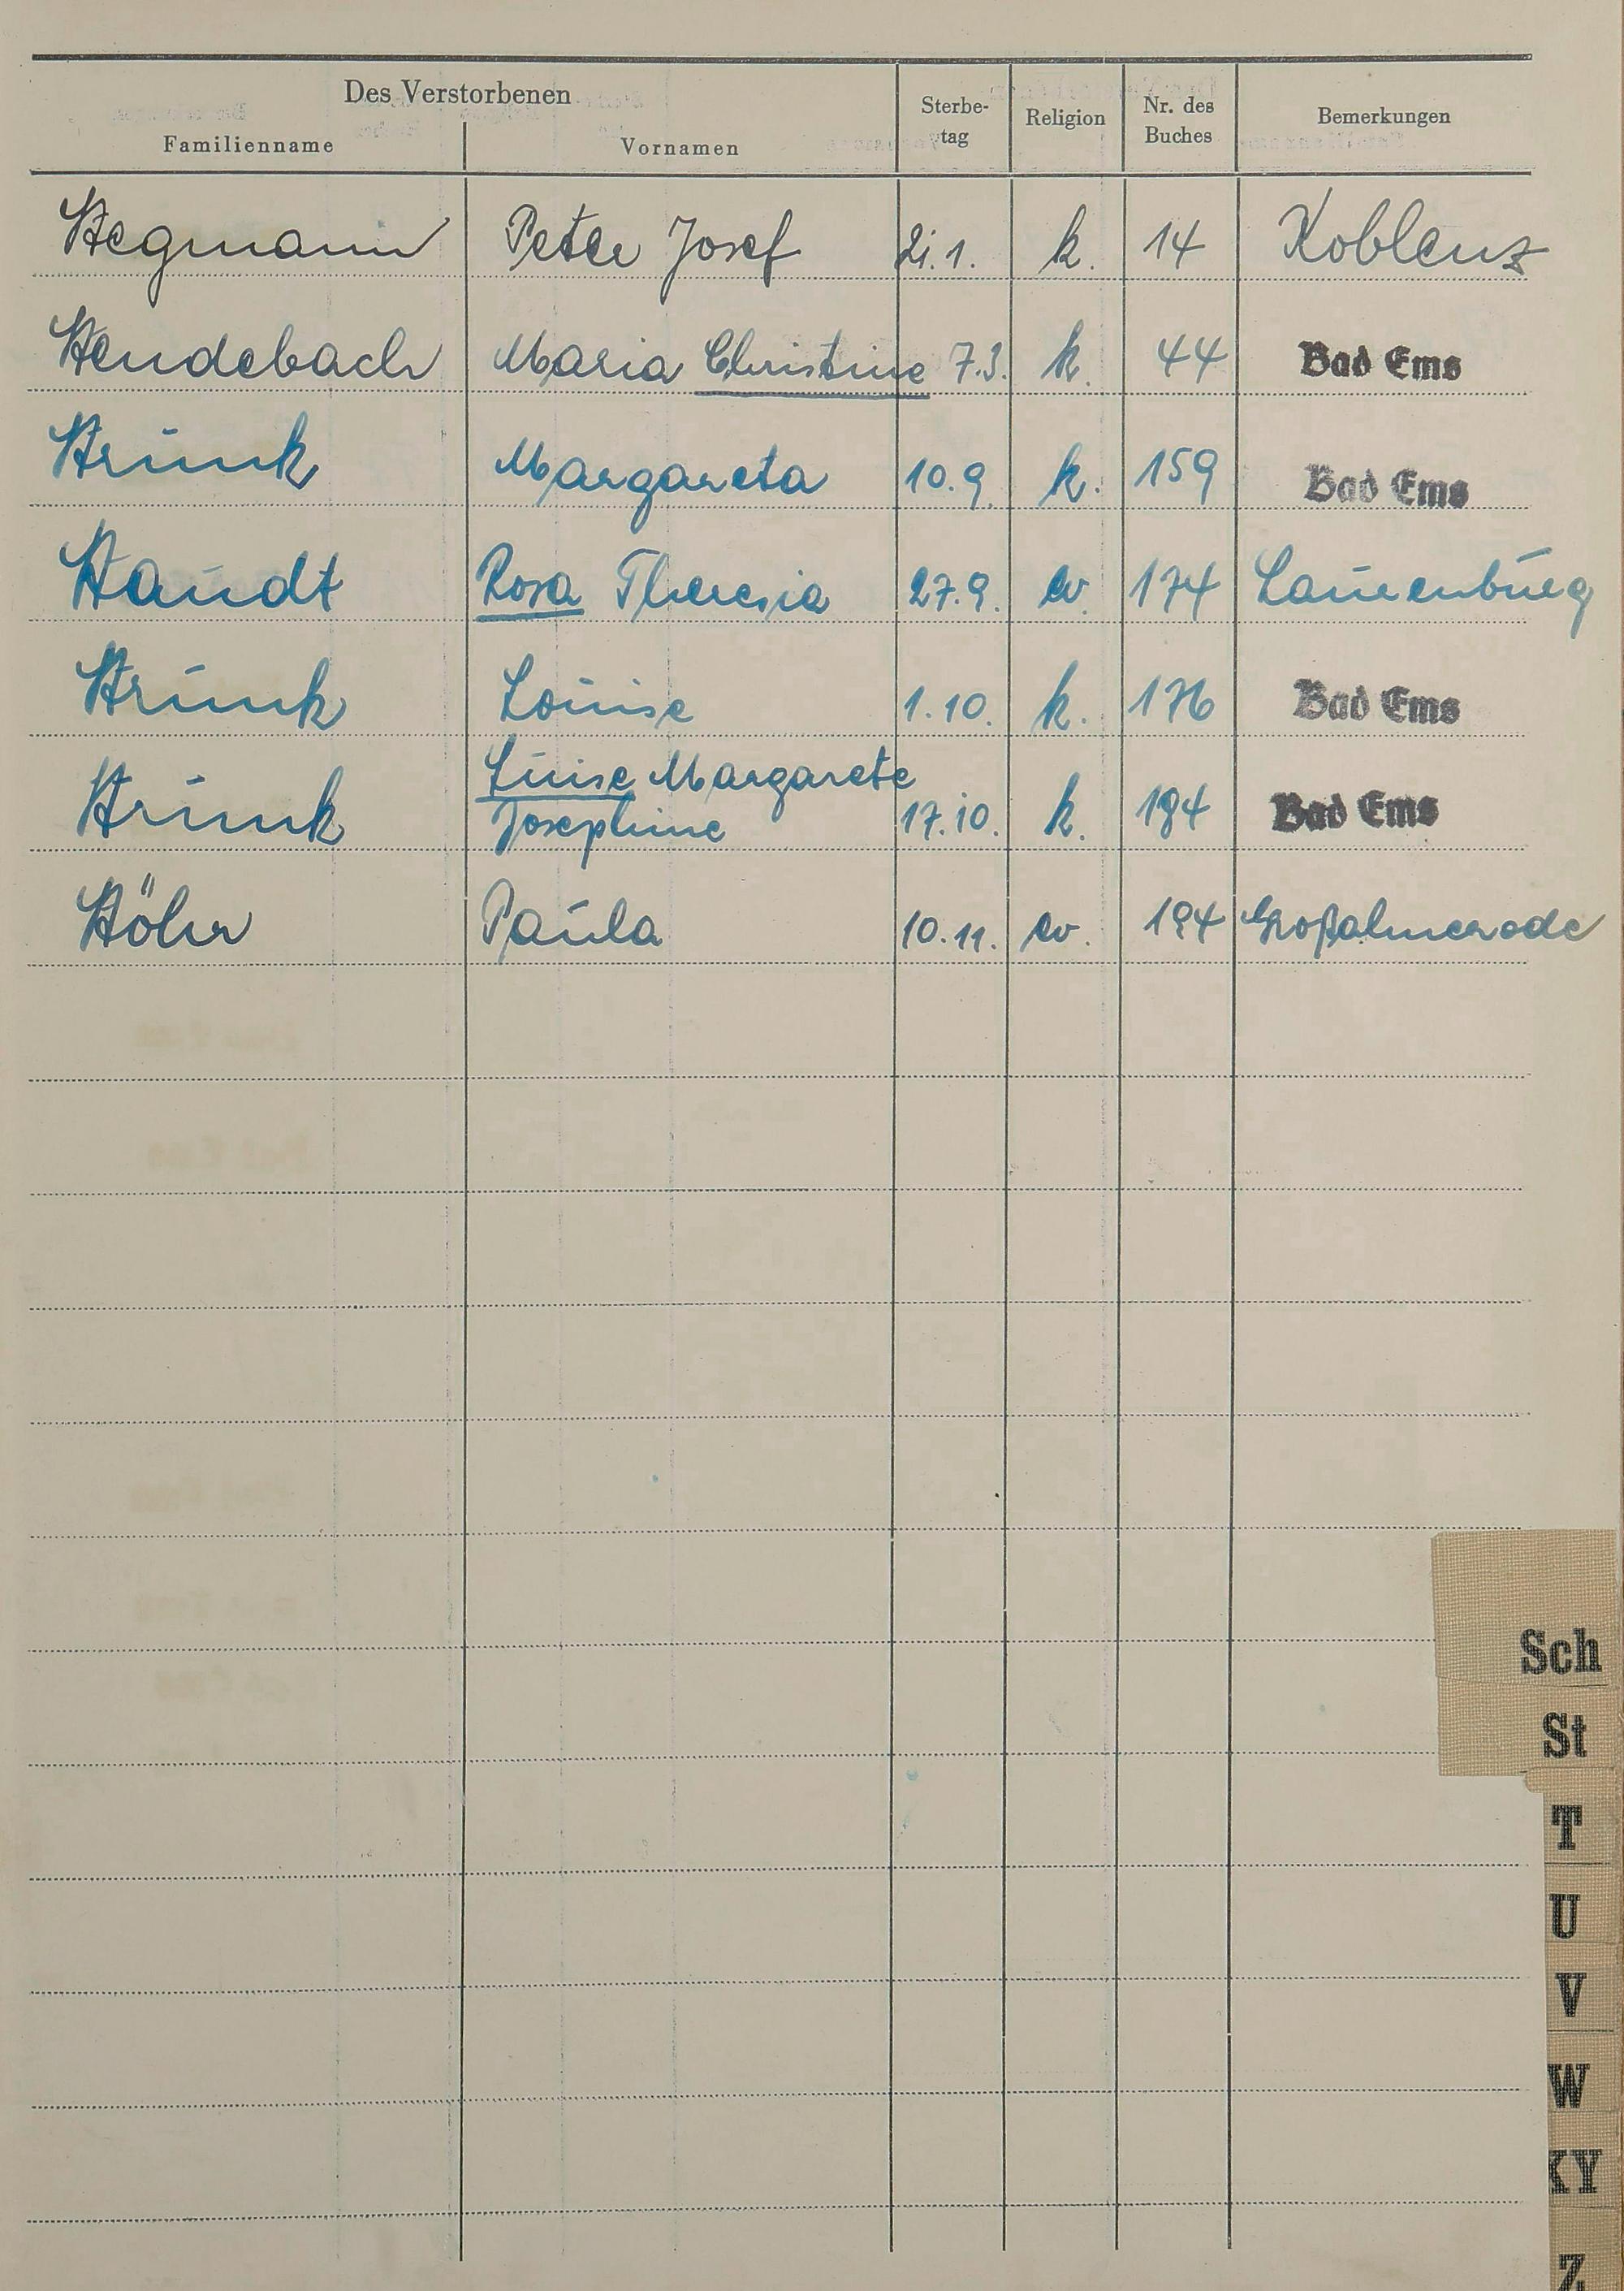 Des Verstorbenen
Familienname Vornamen Sterbe-tag Religion Nr. des Buches Bemerkungen
Stegmann Peter Josef 21.1. k. 14 Koblenz
Stendebach Maria Christine 7.3. k. 44 Bad Ems
Strunk Margareta 10.9. k. 159 Bad Ems
Staudt Rosa Theresia 27.9. ev. 174 Laurenburg
Strunk Louise 1.10. k. 176 Bad Ems
Luise Margarete
Strunk Josephine 17.10. k. 184 Bad Ems
Stöhr Paula 10.11. ev. 194 Großalmerode
Sch
St
T
U
V
W
XY
Z